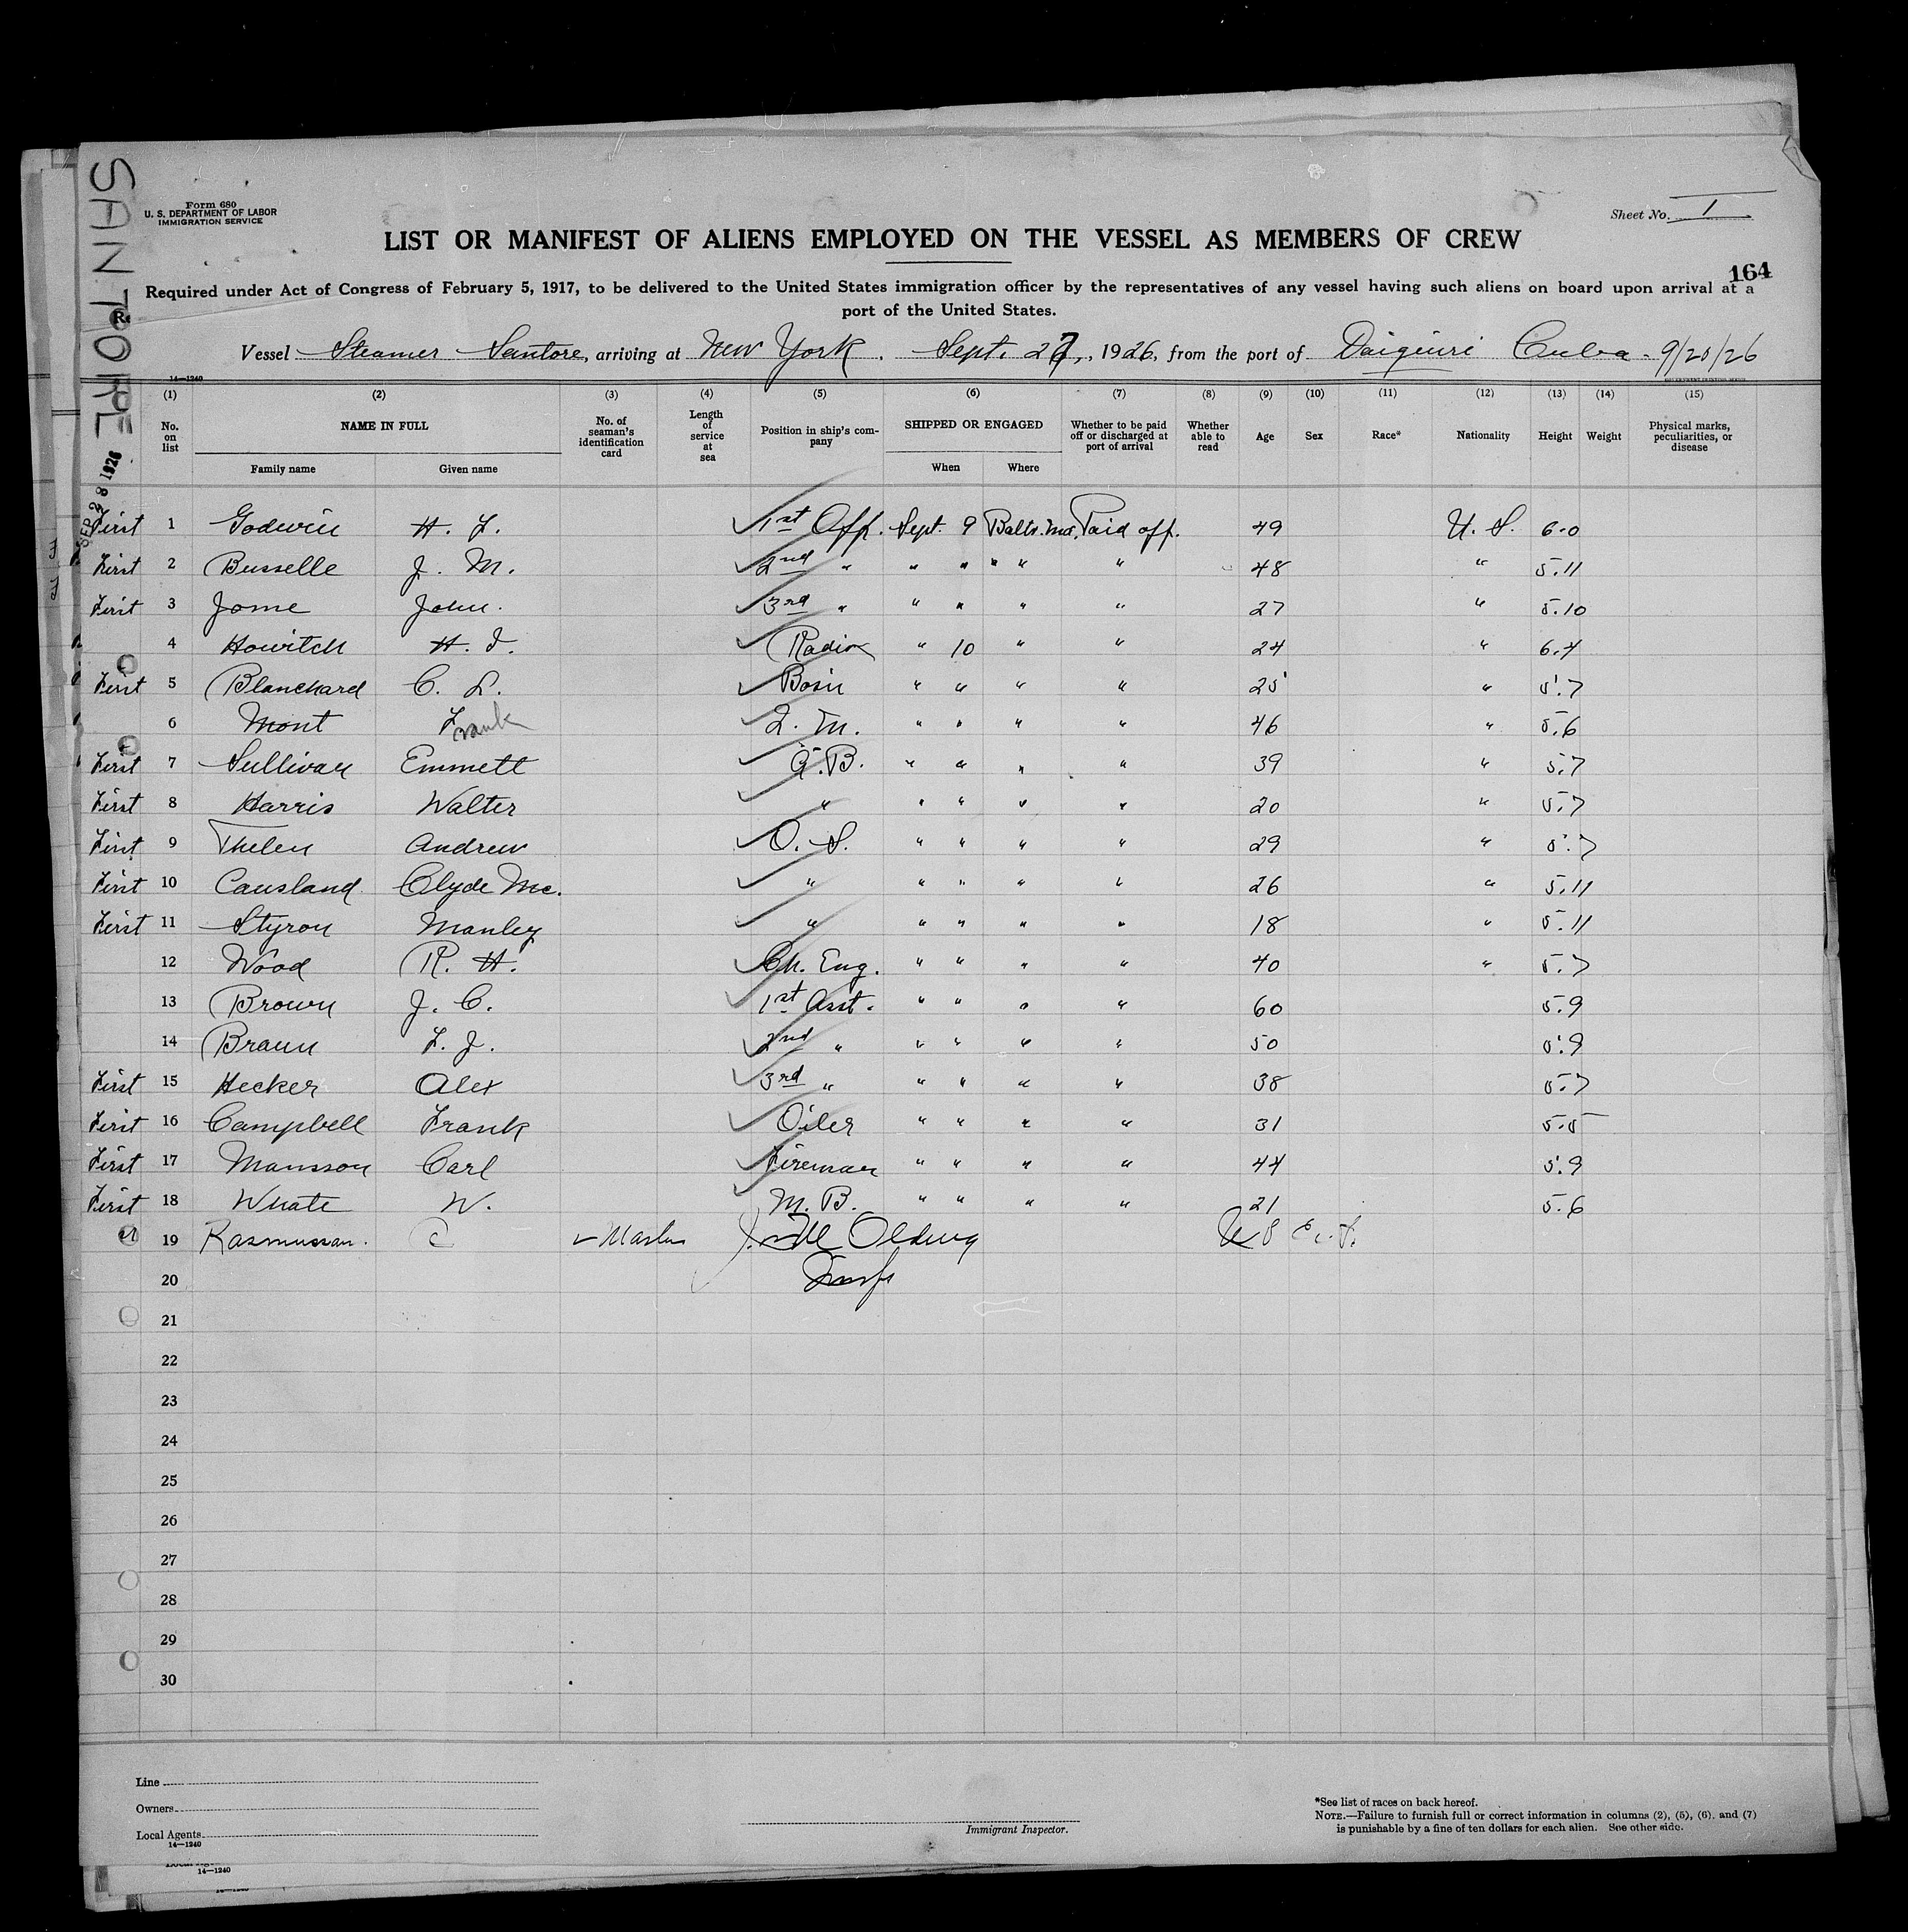 SANTORE
SEP 28 1926
Form 680
U. S. DEPARTMENT OF LABOR
IMMIGRATION SERVICE
Sheet No. 1
LIST OR MANIFEST OF ALIENS EMPLOYED ON THE VESSEL AS MEMBERS OF CREW
164
Required under Act of Congress of February 5, 1917, to be delivered to the United States immigration officer by the representatives of any vessel having such aliens on board upon arrival at a
port of the United States.
Vessel Steamer Santore, arriving at New York. Sept. 27, 1926, from the port of Daiquiri Cuba - 9/20/26
14—1240
(1) (2) (3) (4) (5) (6) (7) (8) (9) (10) (11) (12) (13) (14) (15)
No. on list NAME IN FULL Family name Given name No. of seaman's identification card Length of service at sea Position in ship's company SHIPPED OR ENGAGED When Where Whether to be paid off or discharged at port of arrival Whether able to read Age Sex Race* Nationality Height Weight Physical marks, peculiarities, or disease
First 1 Godwin H. L. 1st Off. Sept. 9 Balto. Md. Paid off. 49 U. S. 6-0
First 2 Busselle J. M. 2nd " " " " " " 48 " 5.11
First 3 Jome John. 3rd " " " " " 27 " 5.10
4 Howitch H. I. Radio " 10 " " 24 " 6.4
First 5 Blanchard C. L. Bosn " " " " 25 " 5.7
6 Mont Frank Q. M. " " " " 46 " 5.6
First 7 Sullivan Emmett A.B. " " " " 39 " 5.7
First 8 Harris Walter " " " " " 20 " 5.7
First 9 Thelen Andrew O. S. " " " " 29 " 5.7
First 10 Causland Clyde Mc. " " " " " 26 " 5.11
First 11 Styron Manley " " " " " 18 " 5.11
12 Wood R. H. Ch. Eng. " " " " 40 " 5.7
13 Brown J. C. 1st Asst. " " " " 60 5.9
14 Braun L. J. 2nd " " " " " 50 5.9
First 15 Hecker Alex 3rd " " " " " 38 5.7
First 16 Campbell Frank Oiler " " " " 31 5.5
First 17 Mansson Carl Fireman " " " " 44 5.9
First 18 Whate W. M. B. " " " " 21 5.6
19 Rasmussan. C Master
20
21
22
23
24
25
26
27
28
29
30
Line
Owners
Local Agents
14—1240
Immigrant Inspector.
*See list of races on back hereof.
NOTE.—Failure to furnish full or correct information in columns (2), (5), (6), and (7)
is punishable by a fine of ten dollars for each alien. See other side.
14—1240